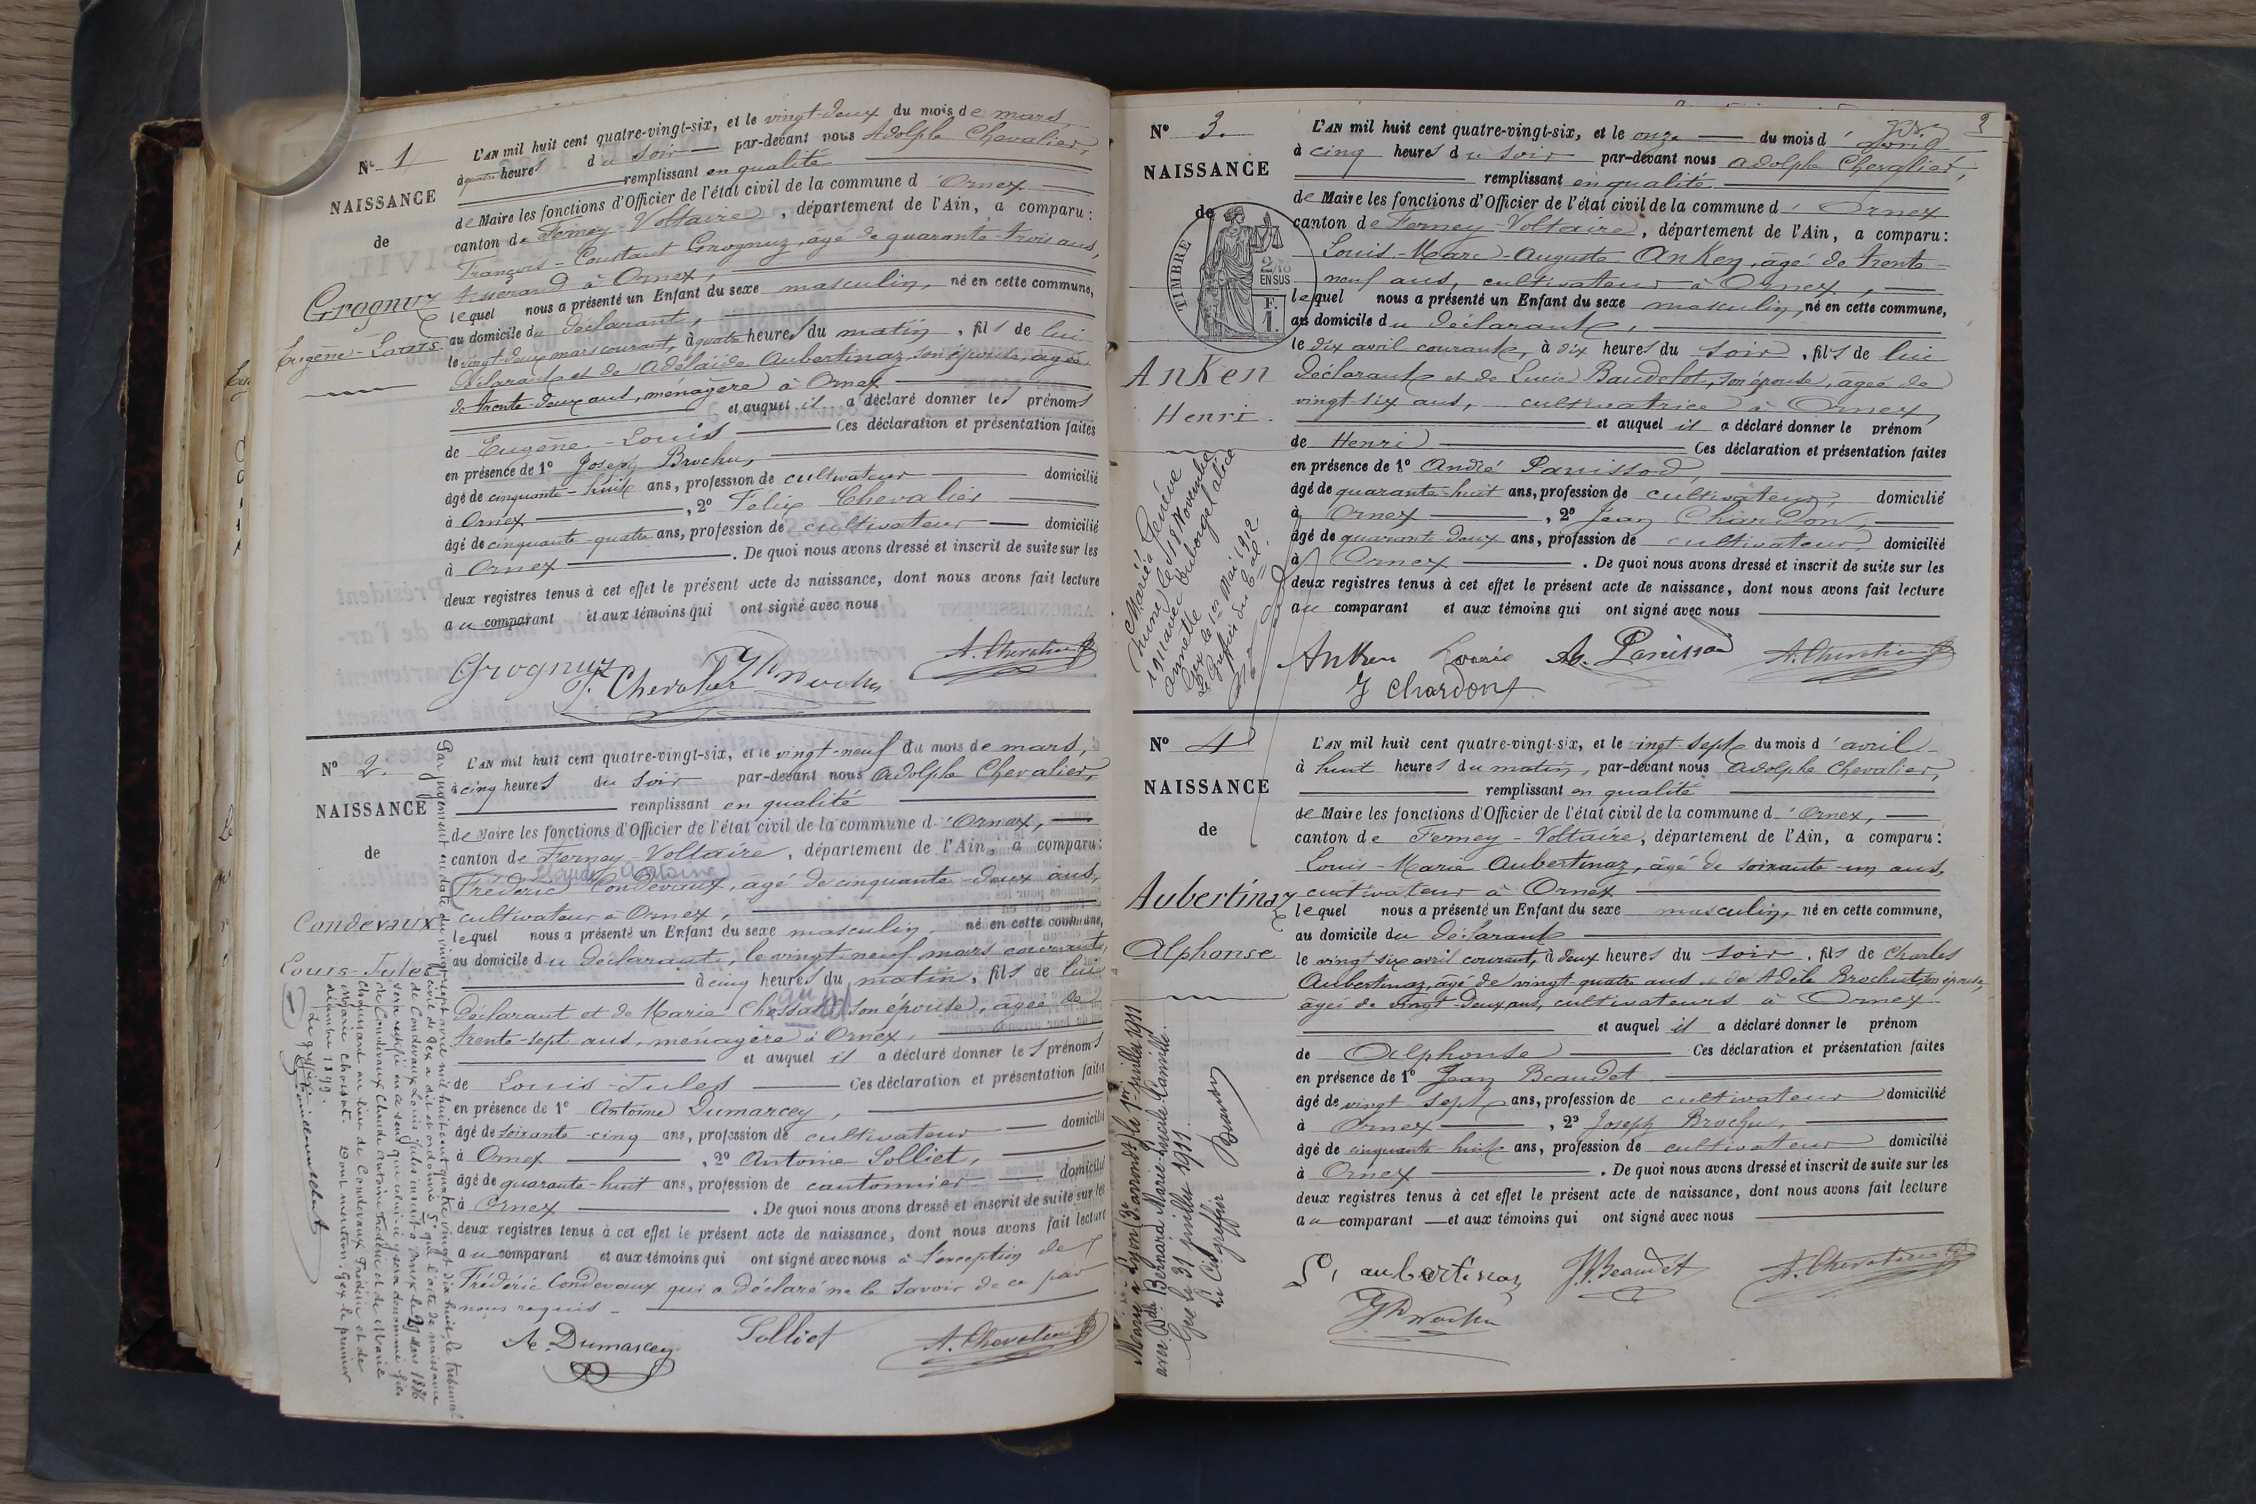 N° 1
NAISSANCE
de
Grognuz
Eugène-Louis
L'AN mil huit cent quatre-vingt-six, et le vingt-deux du mois de mars,
à quatre heures du soir par-devant nous Adolphe Chevalier,
remplissant en qualité
de Maire les fonctions d'Officier de l'état civil de la commune d'Ornex
canton de Ferney-Voltaire, département de l'Ain, a comparu:
François-Constant Grognuz, âgé de quarante-trois ans,
tisserand à Ornex,
lequel nous a présenté un Enfant du sexe masculin, né en cette commune,
au domicile du déclarant,
le vingt-deux mars courant, à quatre heures du matin, fils de lui
déclarant et de Adélaïde Aubertinaz son épouse, agée
de trente-deux ans, ménagère à Ornex
et auquel il a déclaré donner les prénoms
de Eugène-Louis Ces déclaration et présentation faites
en présence de 1° Joseph Brochu,
âgé de cinquante-huit ans, profession de cultivateur domicilié
à Ornex, 2° Félix Chevalier
âgé de cinquante-quatre ans, profession de cultivateur domicilié
à Ornex. De quoi nous avons dressé et inscrit de suite sur les
deux registres tenus à cet effet le présent acte de naissance, dont nous avons fait lecture
au comparant et aux témoins qui ont signé avec nous
Grognuz A. Chevalier
F. Chevalier
N° 2.
NAISSANCE
de
Condevaux
Louis-Jules
L'AN mil huit cent quatre-vingt-six, et le vingt-neuf du mois de mars,
à cinq heures du soir par-devant nous Adolphe Chevalier,
remplissant en qualité
de Maire les fonctions d'Officier de l'état civil de la commune d'Ornex,
canton de Ferney-Voltaire, département de l'Ain, a comparu:
Claude Antoine
Frédéric Condevaux, âgé de cinquante-deux ans,
cultivateur à Ornex,
lequel nous a présenté un Enfant du sexe masculin, né en cette commune,
au domicile du déclarant, le vingt-neuf mars courant,
à cinq heures du matin, fils de lui
déclarant et de Marie son épouse, agée de
trente-sept ans, ménagère à Ornex,
et auquel il a déclaré donner les prénoms
de Louis-Jules Ces déclaration et présentation faites
en présence de 1° Antoine Dumarcey,
âgé de soixante-cinq ans, profession de cultivateur domicilié
à Ornex, 2° Antoine Solliet,
âgé de quarante-huit ans, profession de cantonnier domicilié
à Ornex. De quoi nous avons dressé et inscrit de suite sur les
deux registres tenus à cet effet le présent acte de naissance, dont nous avons fait lecture
au comparant et aux témoins qui ont signé avec nous à l'exception de
Frédéric Condevaux qui a déclaré ne le savoir de ce par
nous requis.
A Dumarcey Solliet A. Chevalier
Par jugement en date du vingt-sept avril mil huit cent quatre vingt dix huit, le tribunal
civil de Gex a dit et ordonné 5° que l'acte de naissance
de Condevaux Louis Jules inscrit à Ornex le 29 mars 1886
sera rectifié en ce sens que celui-ci y sera dénommé fils
de Condevaux Claude Antoine Frédéric et de Marie
au lieu de Condevaux Frédéric et de
Marie Chossat. Dont mention. Gex le premier
1899.
Le greffier
N° 3.
NAISSANCE
de
TIMBRE
2/10 EN SUS
F. 1.
Anken
Henri.
3
L'AN mil huit cent quatre-vingt-six, et le onze du mois d'avril
à cinq heures du soir par-devant nous Adolphe Chevalier,
remplissant en qualité
de Maire les fonctions d'Officier de l'état civil de la commune d'Ornex
canton de Ferney-Voltaire, département de l'Ain, a comparu:
Louis-Marc-Auguste Anken, âgé de trente-
neuf ans, cultivateur à Ornex,
lequel nous a présenté un Enfant du sexe masculin, né en cette commune,
au domicile du déclarant,
le dix avril courant, à dix heures du soir, fils de lui
déclarant et de Lucie Baudelot, son épouse, agée de
vingt-six ans, cultivatrice à Ornex,
et auquel il a déclaré donner le prénom
de Henri Ces déclaration et présentation faites
en présence de 1° André Panissod,
âgé de quarante-huit ans, profession de cultivateur, domicilié
à Ornex, 2° Jean Chardon,
âgé de quarante-deux ans, profession de cultivateur, domicilié
à Ornex. De quoi nous avons dressé et inscrit de suite sur les
deux registres tenus à cet effet le présent acte de naissance, dont nous avons fait lecture
au comparant et aux témoins qui ont signé avec nous
Anken Louis A. Panissod A. Chevalier
J Chardon
Marié à Genève
le 18 Novembre
1911 avec Dubouge Alice
Annette
Gex le 1er Mai 1912
Le Greffier du
N° 4
NAISSANCE
de
Aubertinaz
Alphonse
L'AN mil huit cent quatre-vingt-six, et le vingt-sept du mois d'avril
à huit heures du matin, par-devant nous Adolphe Chevalier,
remplissant en qualité
de Maire les fonctions d'Officier de l'état civil de la commune d'Ornex,
canton de Ferney-Voltaire, département de l'Ain, a comparu:
Louis-Marie Aubertinaz, âgé de soixante-un ans,
cultivateur à Ornex
lequel nous a présenté un Enfant du sexe masculin, né en cette commune,
au domicile du déclarant
le vingt-six avril courant, à deux heures du soir, fils de Charles
Aubertinaz, âgé de vingt-quatre ans et de Adèle Brochut son épouse,
âgée de vingt-deux ans, cultivateurs à Ornex
et auquel il a déclaré donner le prénom
de Alphonse Ces déclaration et présentation faites
en présence de 1° Jean Beaudet
âgé de vingt-sept ans, profession de cultivateur domicilié
à Ornex, 2° Joseph Brochu,
âgé de cinquante-huit ans, profession de cultivateur domicilié
à Ornex. De quoi nous avons dressé et inscrit de suite sur les
deux registres tenus à cet effet le présent acte de naissance, dont nous avons fait lecture
au comparant et aux témoins qui ont signé avec nous
L. aubertinaz J. Beaudet A. Chevalier
Marié à Lyon (3e arrond) le 1er juillet 1911
avec Dlle Bernard Marie-Marthe Camille.
Gex le 31 juillet 1911.
Le Cis greffier